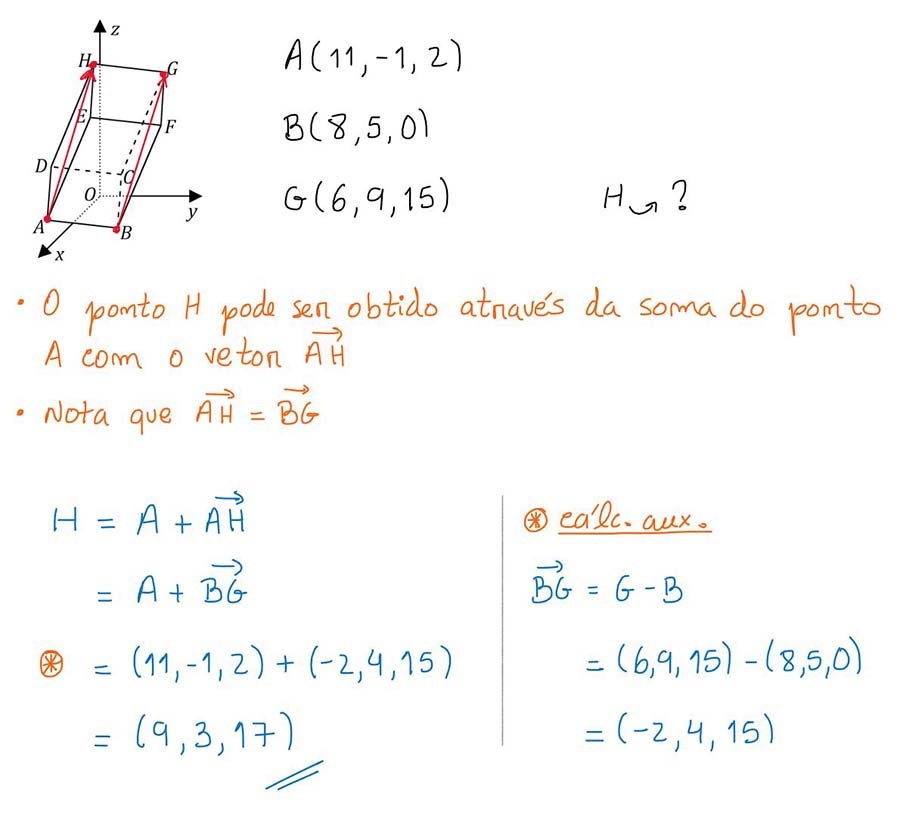 z
H
G
E
F
D
C
O
y
A
B
x
A(11,-1,2)
B(8,5,0)
G(6,9,15)
H ?
• O ponto H pode ser obtido através da soma do ponto
A com o vetor AH
• Nota que AH = BG
H = A + AH
= A + BG
= (11,-1,2) + (-2,4,15)
= (9,3,17)
cálc. aux.
BG = G - B
= (6,9,15) - (8,5,0)
= (-2,4,15)